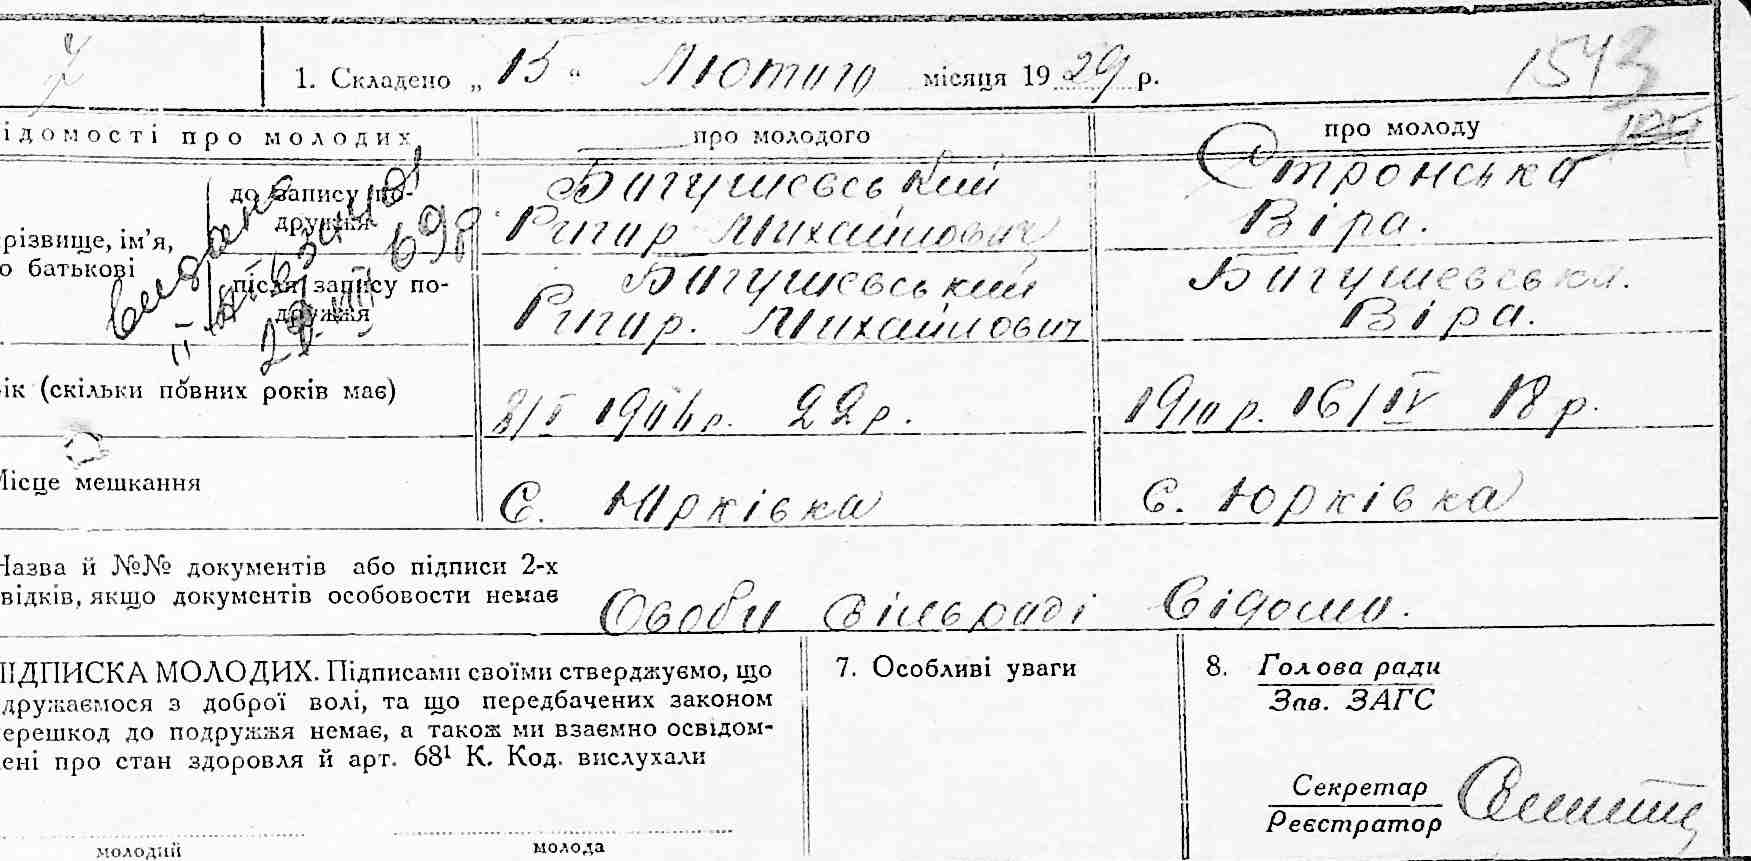 1. Складено „ 15 " Лютого місяця 1929 р.
1543
ідомості про молодих
про молодого
про молоду
до запису по-
дружжя
різвище, ім'я,
о батькові
після запису по-
дружжя
698
Богушевський
Григор Михайлович
Стронська
Віра.
Богушевський
Григор. Михайлович
Богушевська.
Віра.
ік (скільки повних років має)
22 р.
1910 р. 16/IV 18 р.
Місце мешкання
с. Юрківка
с. Юрківка
Назва й №№ документів або підписи 2-х
відків, якщо документів особовости немає
Особи сільраді відомі.
ПІДПИСКА МОЛОДИХ. Підписами своїми стверджуємо, що
дружаємося з доброї волі, та що передбачених законом
ерешкод до подружжя немає, а також ми взаємно освідом-
ені про стан здоровля й арт. 68¹ К. Код. вислухали
молодий
молода
7. Особливі уваги
8. Голова ради
Зав. ЗАГС
Секретар
Реєстратор